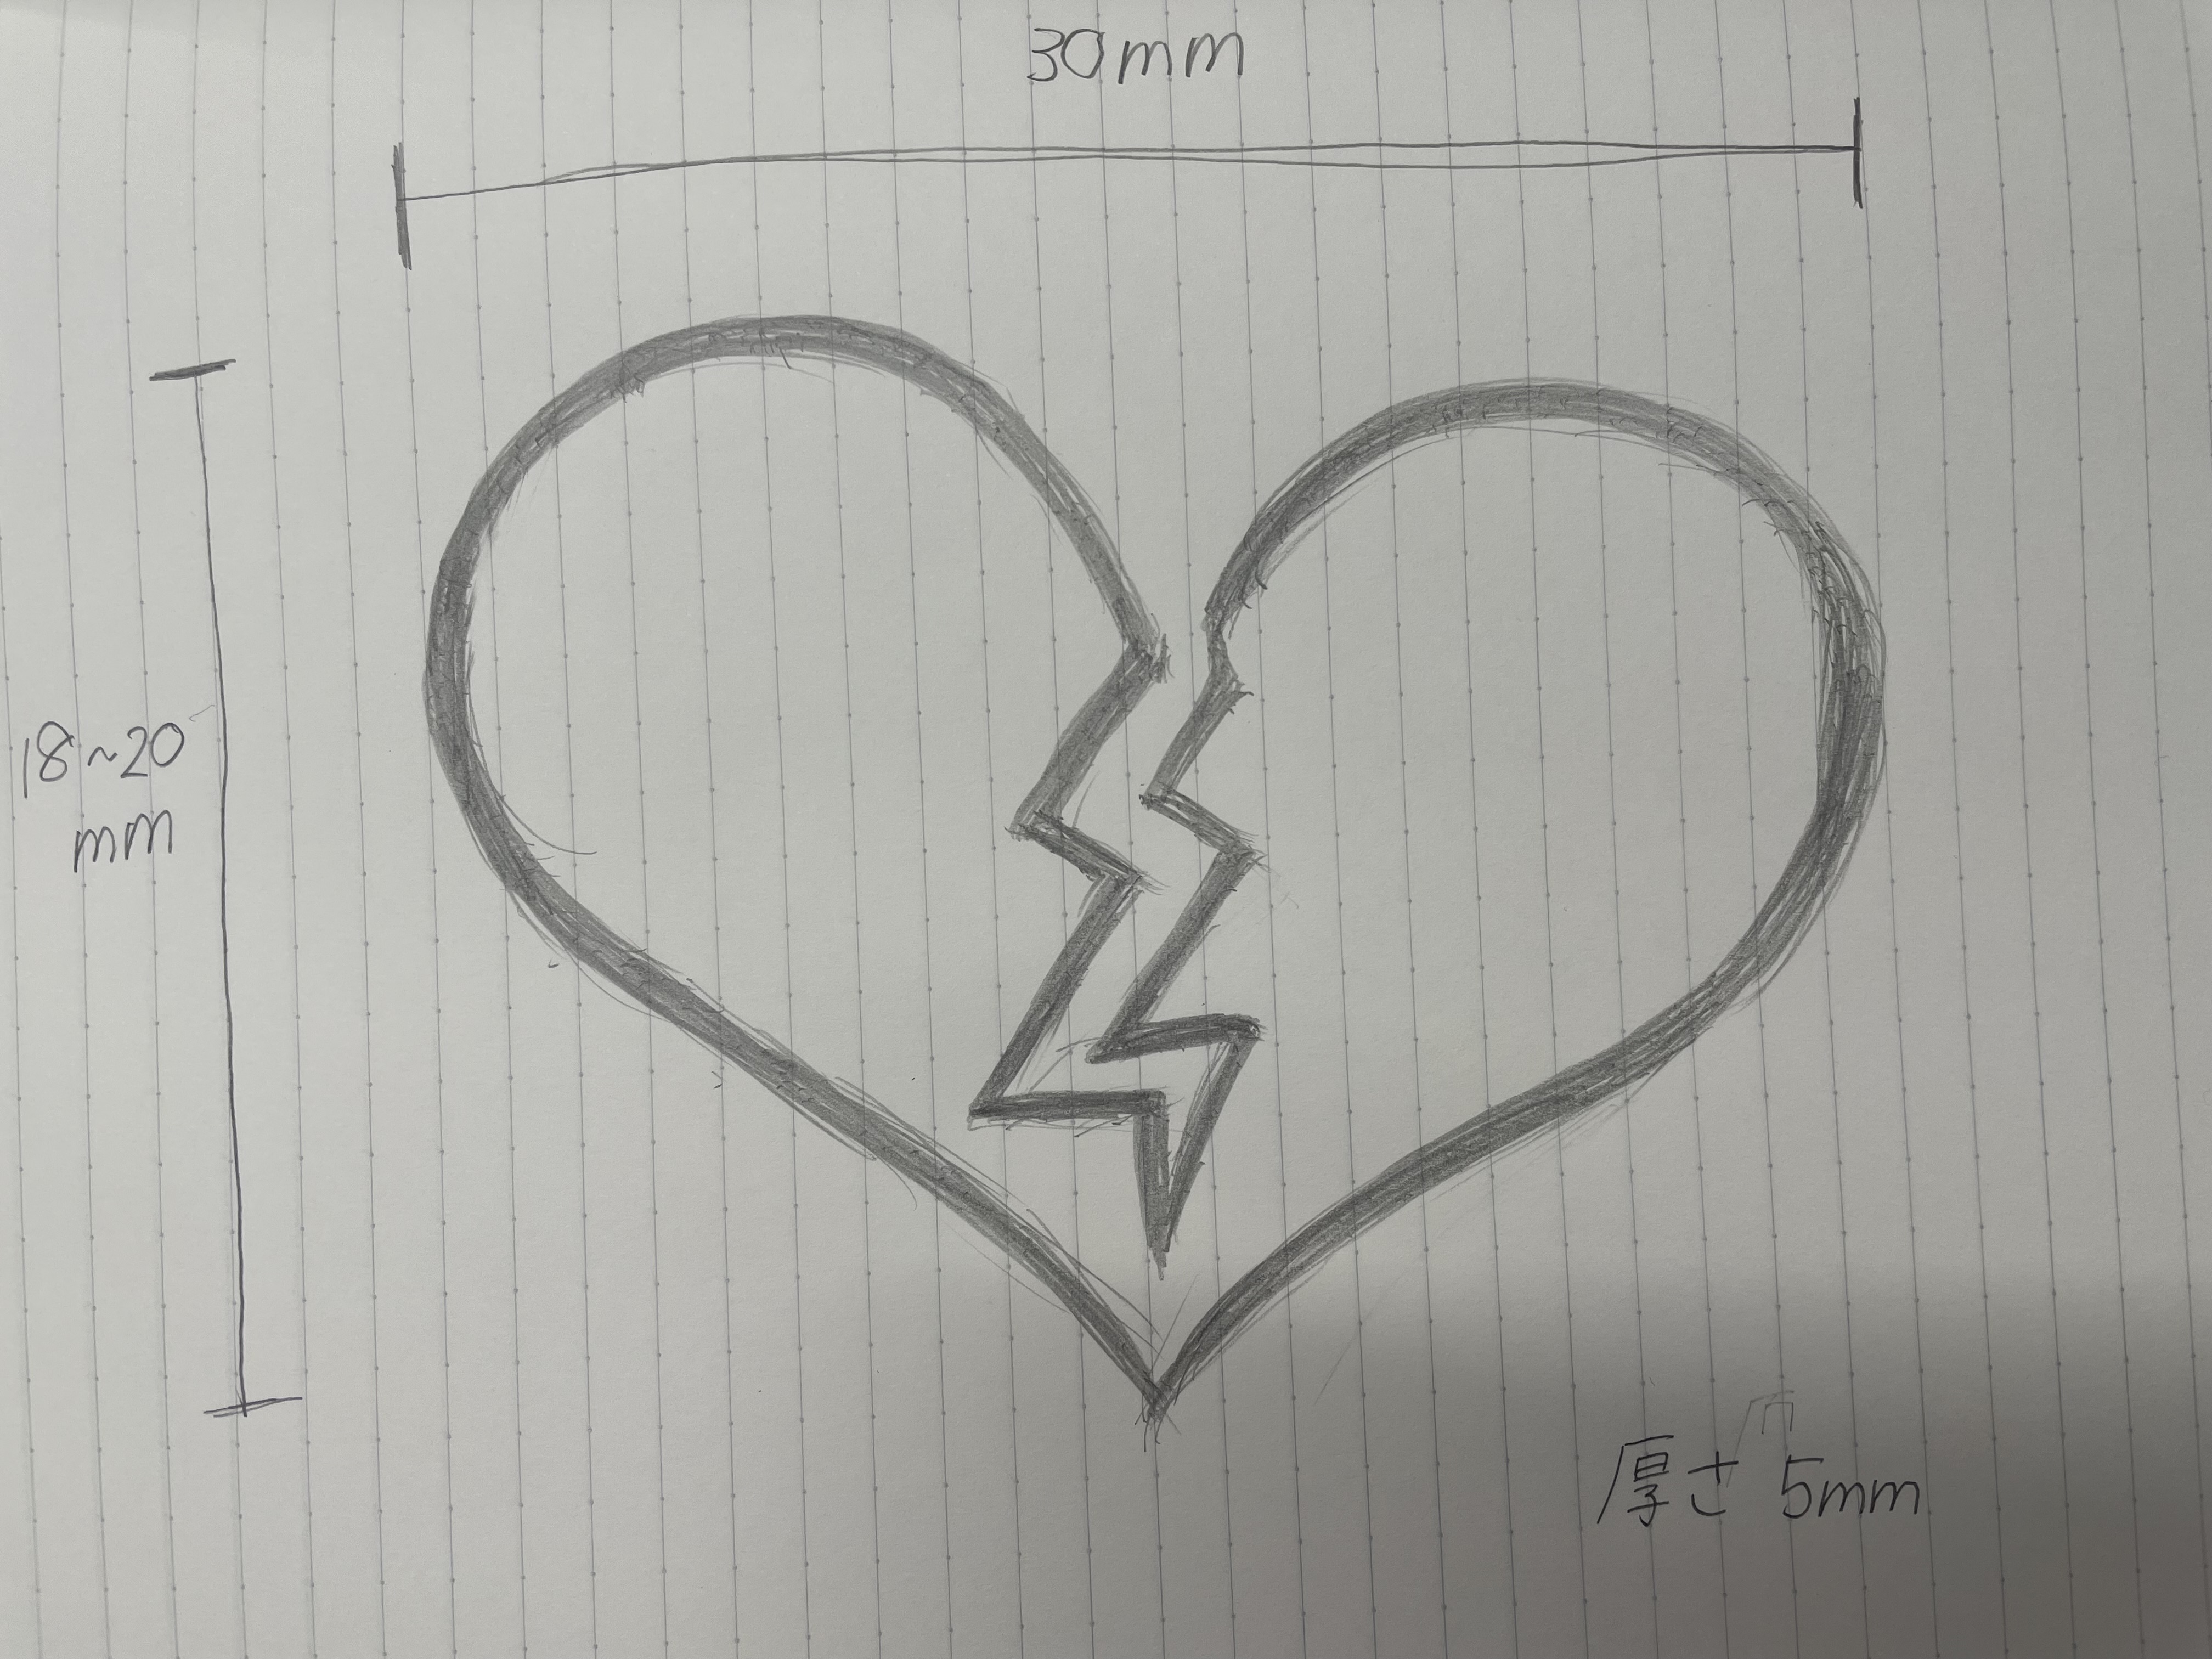 30mm
18~20
mm
厚さ 5mm